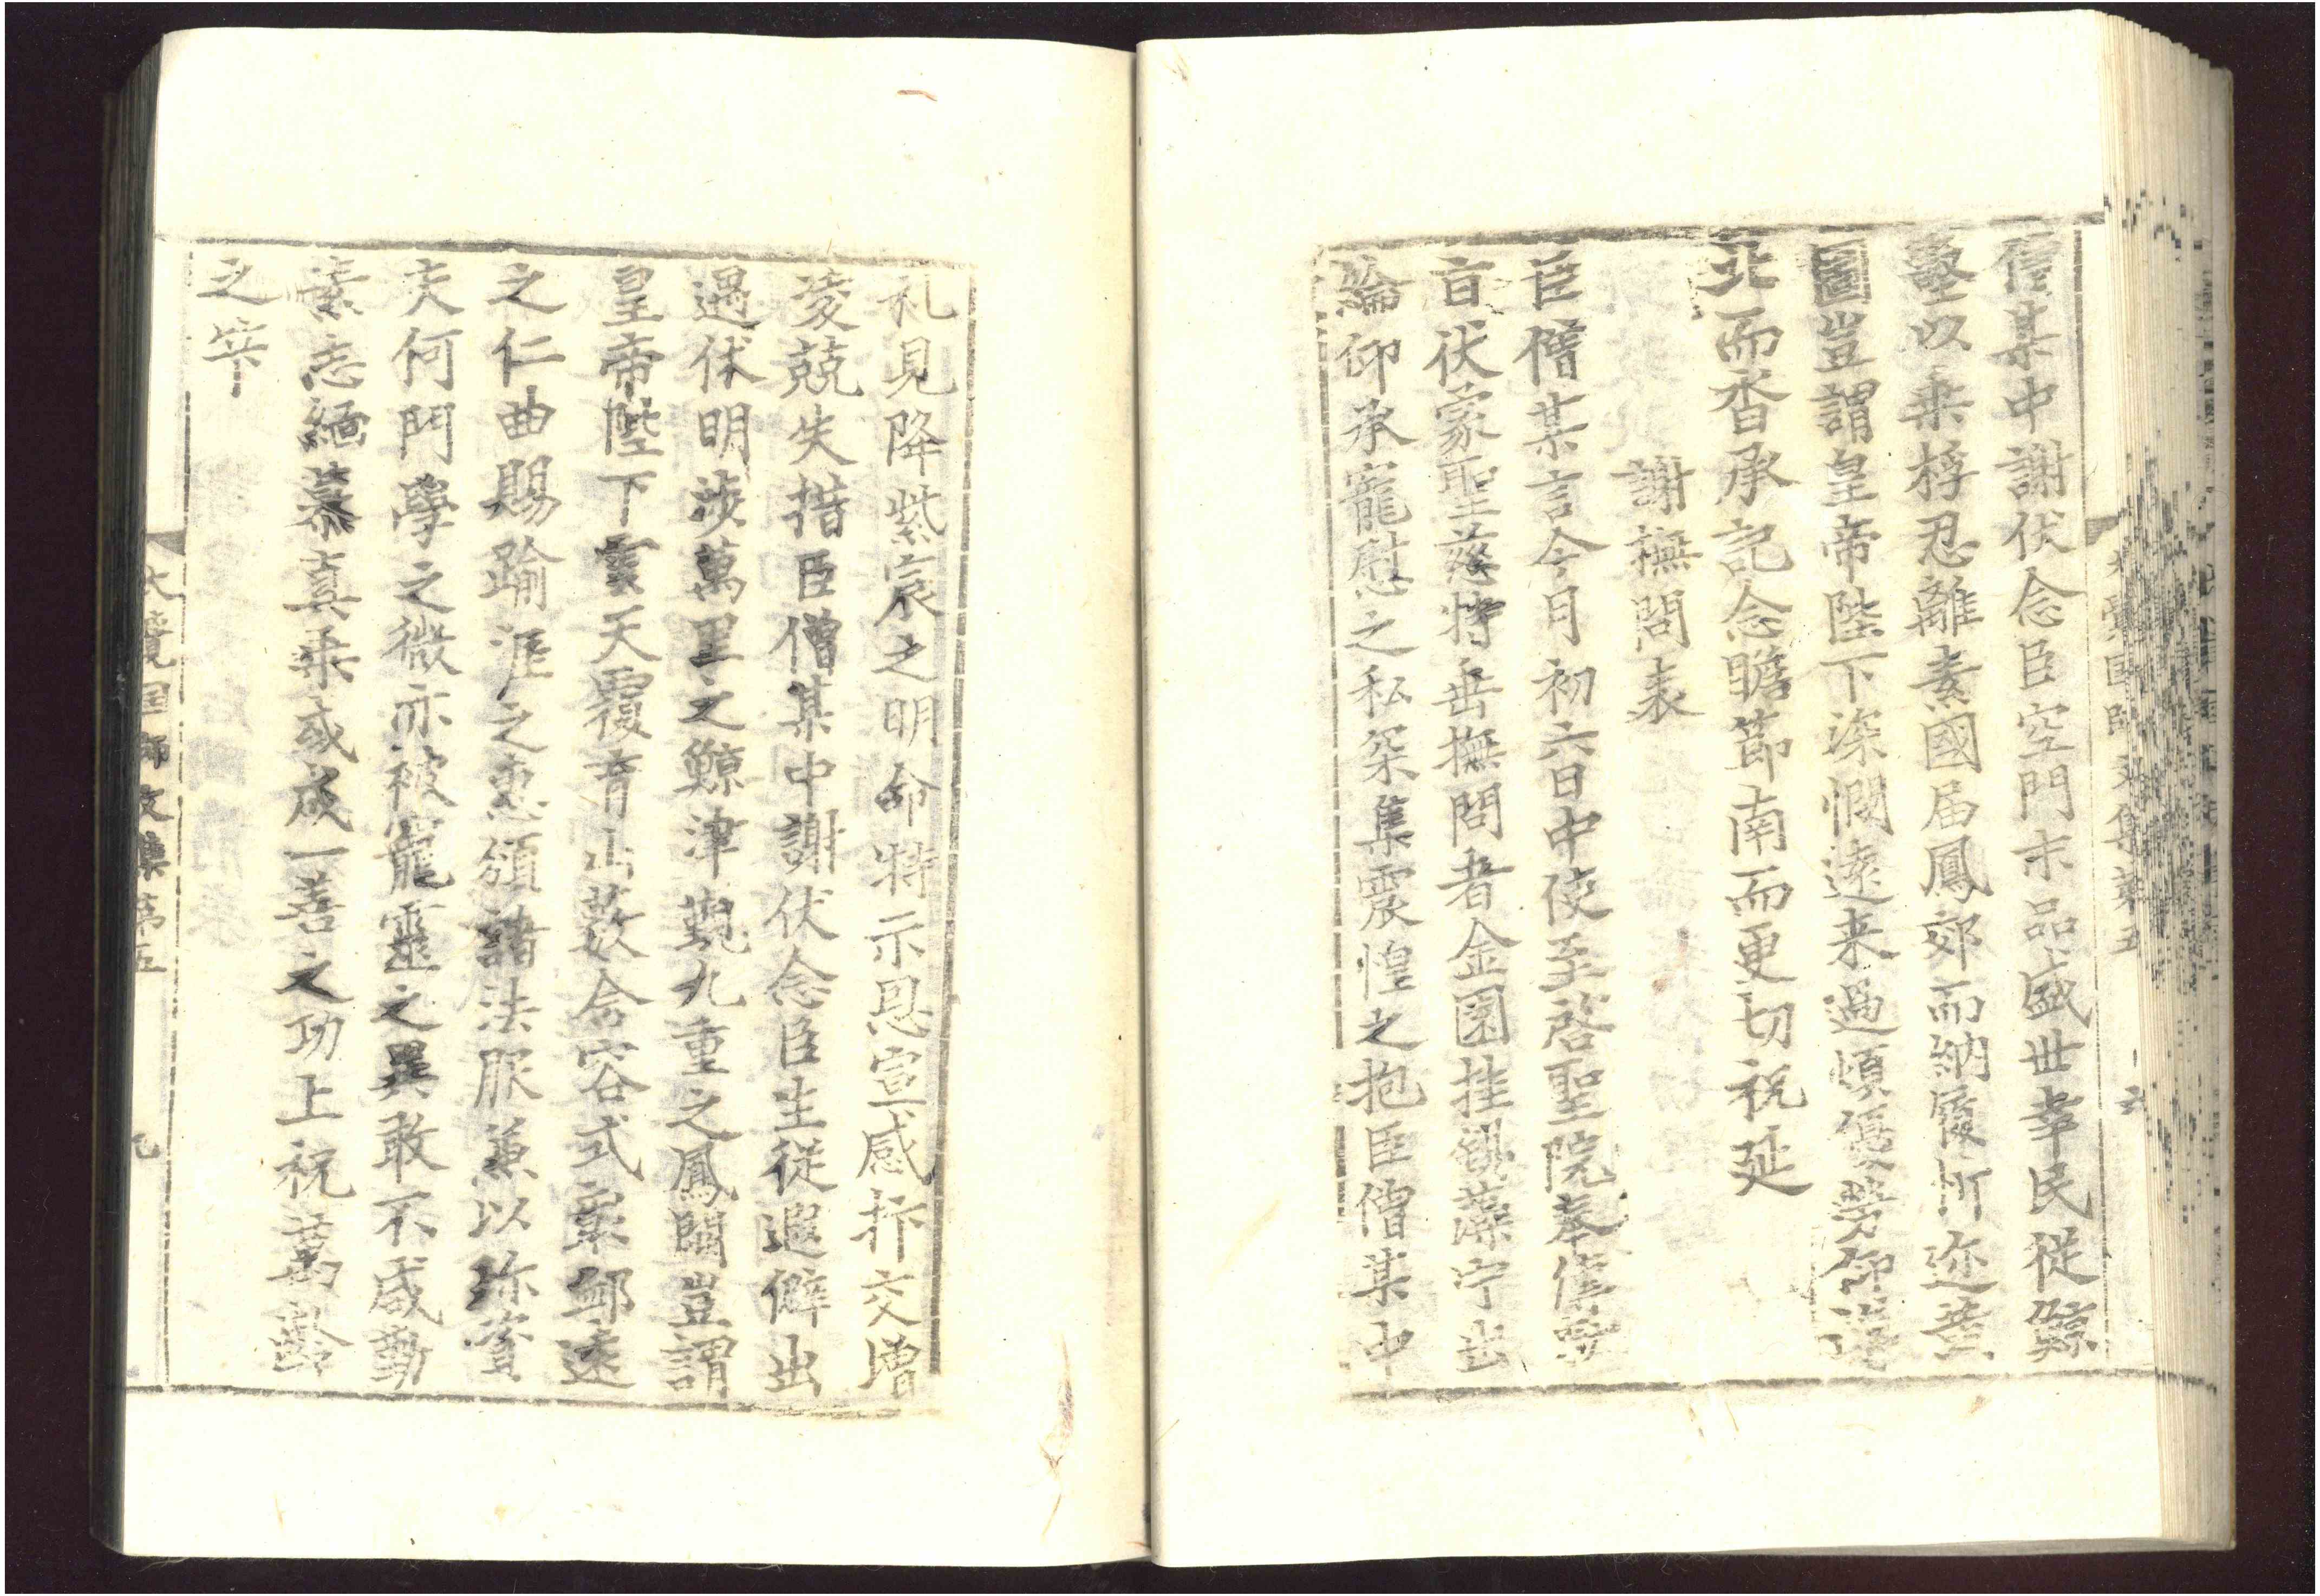 僧某中謝伏念臣空門末品盛世幸民從繇
聖以乘桴忍離素國届鳳郊而納履忻迩
圖豈謂皇帝陛下深憫遠来過煩仰
北而沓承記念瞻節南而更切祝延
謝撫問表
臣僧某言今月初六日中使至啓聖院奉傳
旨伏蒙聖慈特垂撫問者金園挂錫藻宁出
綸仰承寵慰之私采集震惶之抱臣僧某中
大覺國師文集第五
六
札見降紫宸之明命特示恩宣感抃交增
淩兢失措臣僧某中謝伏念臣生從遐僻出
遇休明涉萬里之鯨津觀九重之鳳闕豈謂
皇帝陛下霣天覆育山藪含容式宣鄉遠
之仁曲賜踰涯之惠頒諸法服兼以珎資
夫何門學之微亦被寵靈之異敢不感勤
素志緬慕真乘或成一善之功上祝萬齡
之筭
大覺國師文集第五
七